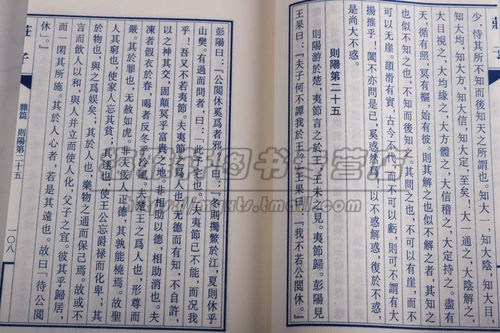 莊子
少，恃其所不知而後知天之所謂也。知大一，知大陰，知大目，
知大均，知大方，知大信，知大定，至矣。大一通之，大陰解之，
大目視之，大均緣之，大方體之，大信稽之，大定持之。盡有
天，循有照，冥有樞，始有彼。則其解之也似不解之者，其知之
也似不知之也，不知而後知之。其問之也，不可以有崖，而不
可以无崖。頡滑有實，古今不代，而不可以虧，則可不謂有大
揚搉乎！闔不亦問是已，奚惑然為！以不惑解惑，復於不惑，
是尚大不惑。
則陽第二十五
則陽游於楚，夷節言之於王，王未之見，夷節歸。彭陽見
王果曰：「夫子何不譚我於王？」王果曰：「我不若公閱休。」
彭陽曰：「公閱休奚為者邪？」曰：「冬則擉鱉於江，夏則休乎
山樊。有過而問者，曰：『此予宅也。』夫夷節已不能，而況我
乎！吾又不若夷節。夫夷節之為人也，无德而有知，不自許，
以之神其交，固顛冥乎富貴之地。非相助以德，相助消也。夫
凍者假衣於春，暍者反冬乎冷風。夫楚王之為人也，形尊
而嚴；其於罪也，无赦如虎；非夫佞人正德，其孰能橈焉。故聖
人其窮也，使家人忘其貧，其達也，使王公忘爵祿而化卑；其
於物也，與之為娛矣；其於人也，樂物之通而保己焉。故或不
言而飲人以和，與人並立而使人化，父子之宜，彼其乎歸居，
而一閒其所施。其於人心者，若是其遠也。故曰『待公閱
休』。」
莊子
雜篇 則陽第二十五
一〇八